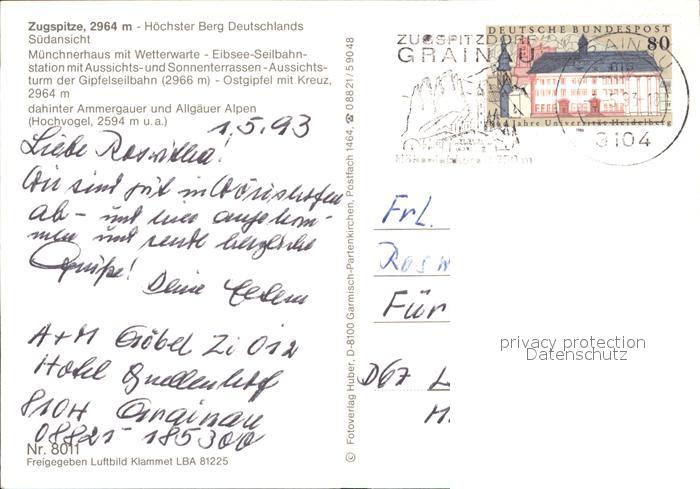 Zugspitze, 2964 m - Höchster Berg Deutschlands
Südansicht
Münchnerhaus mit Wetterwarte - Eibsee-Seilbahn-
station mit Aussichts- und Sonnenterrassen - Aussichts-
turm der Gipfelseilbahn (2966 m) - Ostgipfel mit Kreuz,
2964 m
dahinter Ammergauer und Allgäuer Alpen
(Hochvogel, 2594 m u. a.)
1.5.93
Liebe Roswitha!
Wir sind gut in Wörishofen
ab - und hier angekom-
men und senden herzliche
Grüße!
Deine Eltern
A+M Göbel Zi 012
Hotel Quellenhof
8104 Grainau
08821-185300
Nr. 8011
Freigegeben Luftbild Klammet LBA 81225
© Fotoverlag Huber, D-8100 Garmisch-Partenkirchen, Postfach 1464, ☎ 08821/59048
ZUGSPITZDORF
GRAINAU
DEUTSCHE BUNDESPOST
80
Jahre Universität Heidelberg
GRAINAU
8104
Frl.
Ros
Für
D67
privacy protection
Datenschutz